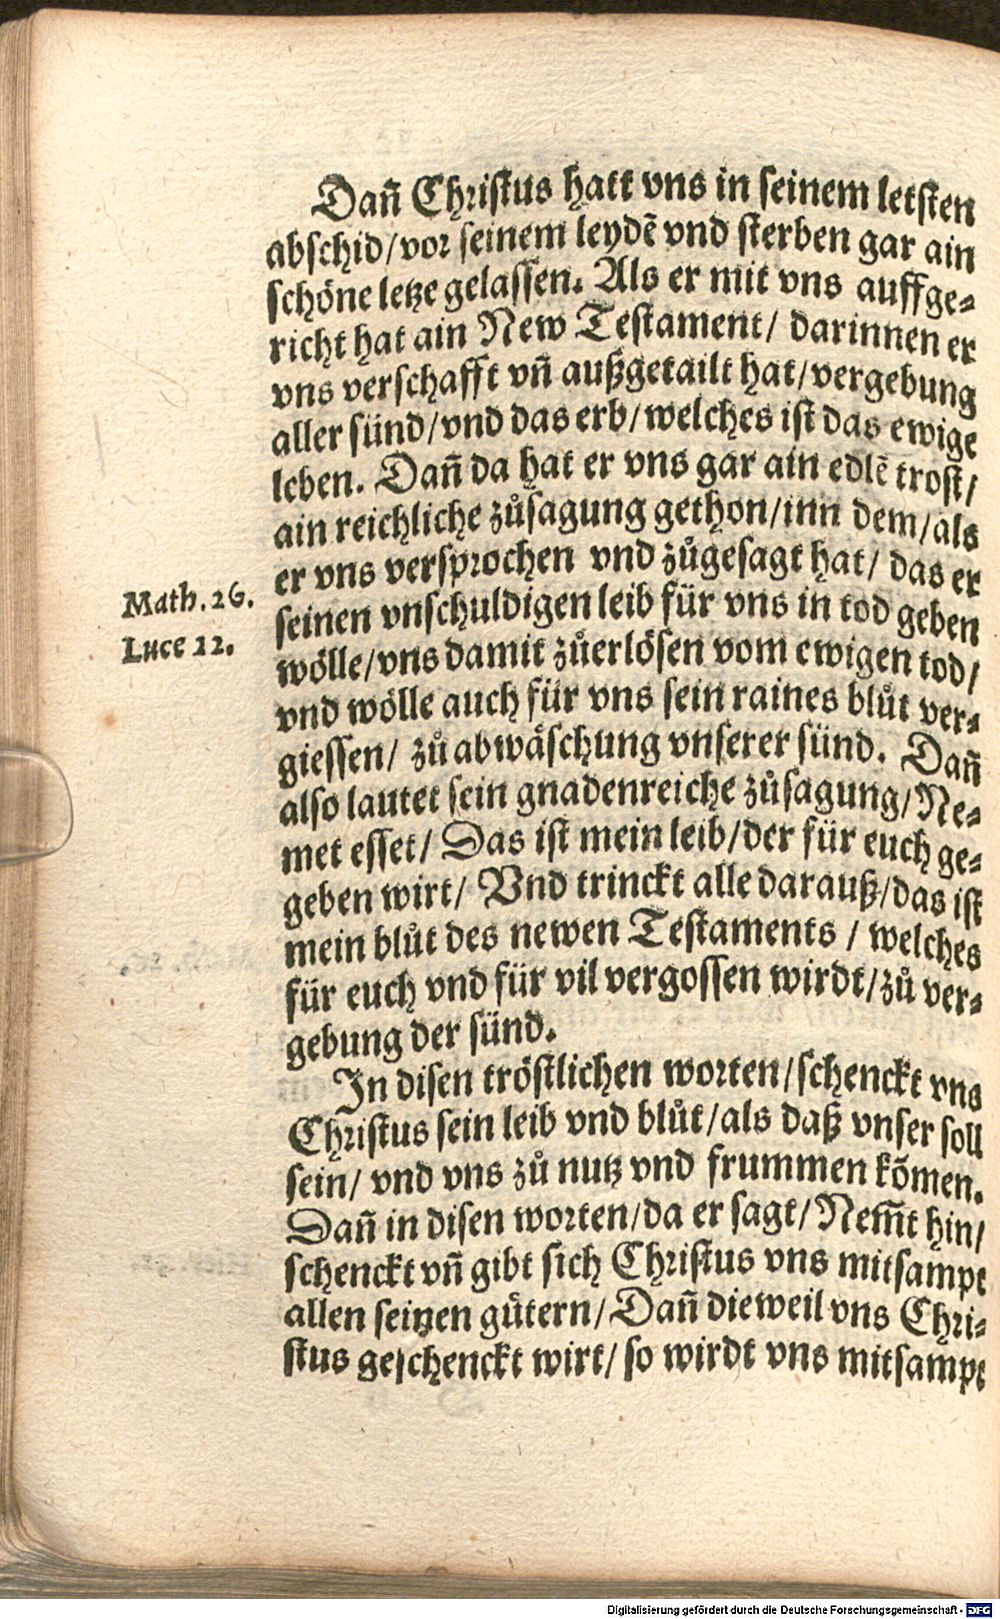 Dañ Christus hatt vns in seinem letsten
abschid/vor seinem leydẽ vnd sterben gar ain
schöne letze gelassen. Als er mit vns auffge-
richt hat ain New Testament/ darinnen er
vns verschafft vñ außgetailt hat/vergebung
aller sünd/vnd das erb/welches ist das ewige
leben. Dañ da hat er vns gar ain edlẽ trost/
ain reichliche zůsagung gethon/inn dem/als
er vns versprochen vnd zůgesagt hat/ das er
Math. 26.
seinen vnschuldigen leib für vns in tod geben
Luce 22.
wölle/vns damit zůerlösen vom ewigen tod/
vnd wölle auch für vns sein raines blůt ver-
giessen/ zů abwäschung vnserer sünd. Dañ
also lautet sein gnadenreiche zůsagung/Ne-
met esset/ Das ist mein leib/der für euch ge-
geben wirt/ Vnd trinckt alle darauß/das ist
mein blůt des newen Testaments / welches
für euch vnd für vil vergossen wirdt/zů ver-
gebung der sünd.
In disen tröstlichen worten/schenckt vns
Christus sein leib vnd blůt/als daß vnser soll
sein/ vnd vns zů nutz vnd frummen kõmen.
Dañ in disen worten/da er sagt/Nem̃t hin/
schenckt vñ gibt sich Christus vns mitsampt
allen seinen gůtern/Dañ dieweil vns Chri-
stus geschenckt wirt/ so wirdt vns mitsampt
Digitalisierung gefördert durch die Deutsche Forschungsgemeinschaft - DFG